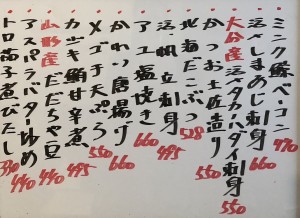 ミンク鯨ベーコン 470
活〆しまあじ刺身 660
大分産活タカバダイ刺身 550
かつお土佐造り 550
北海だこぶつ 528
活帆立刺身 495
アユ塩焼き 660
かれい唐揚げ 660
メゴチ天ぷら 550
カブト鯛甘辛煮 495
山形産だだちゃ豆 440
アスパラバター炒め 440
トロ茄子煮びたし 330